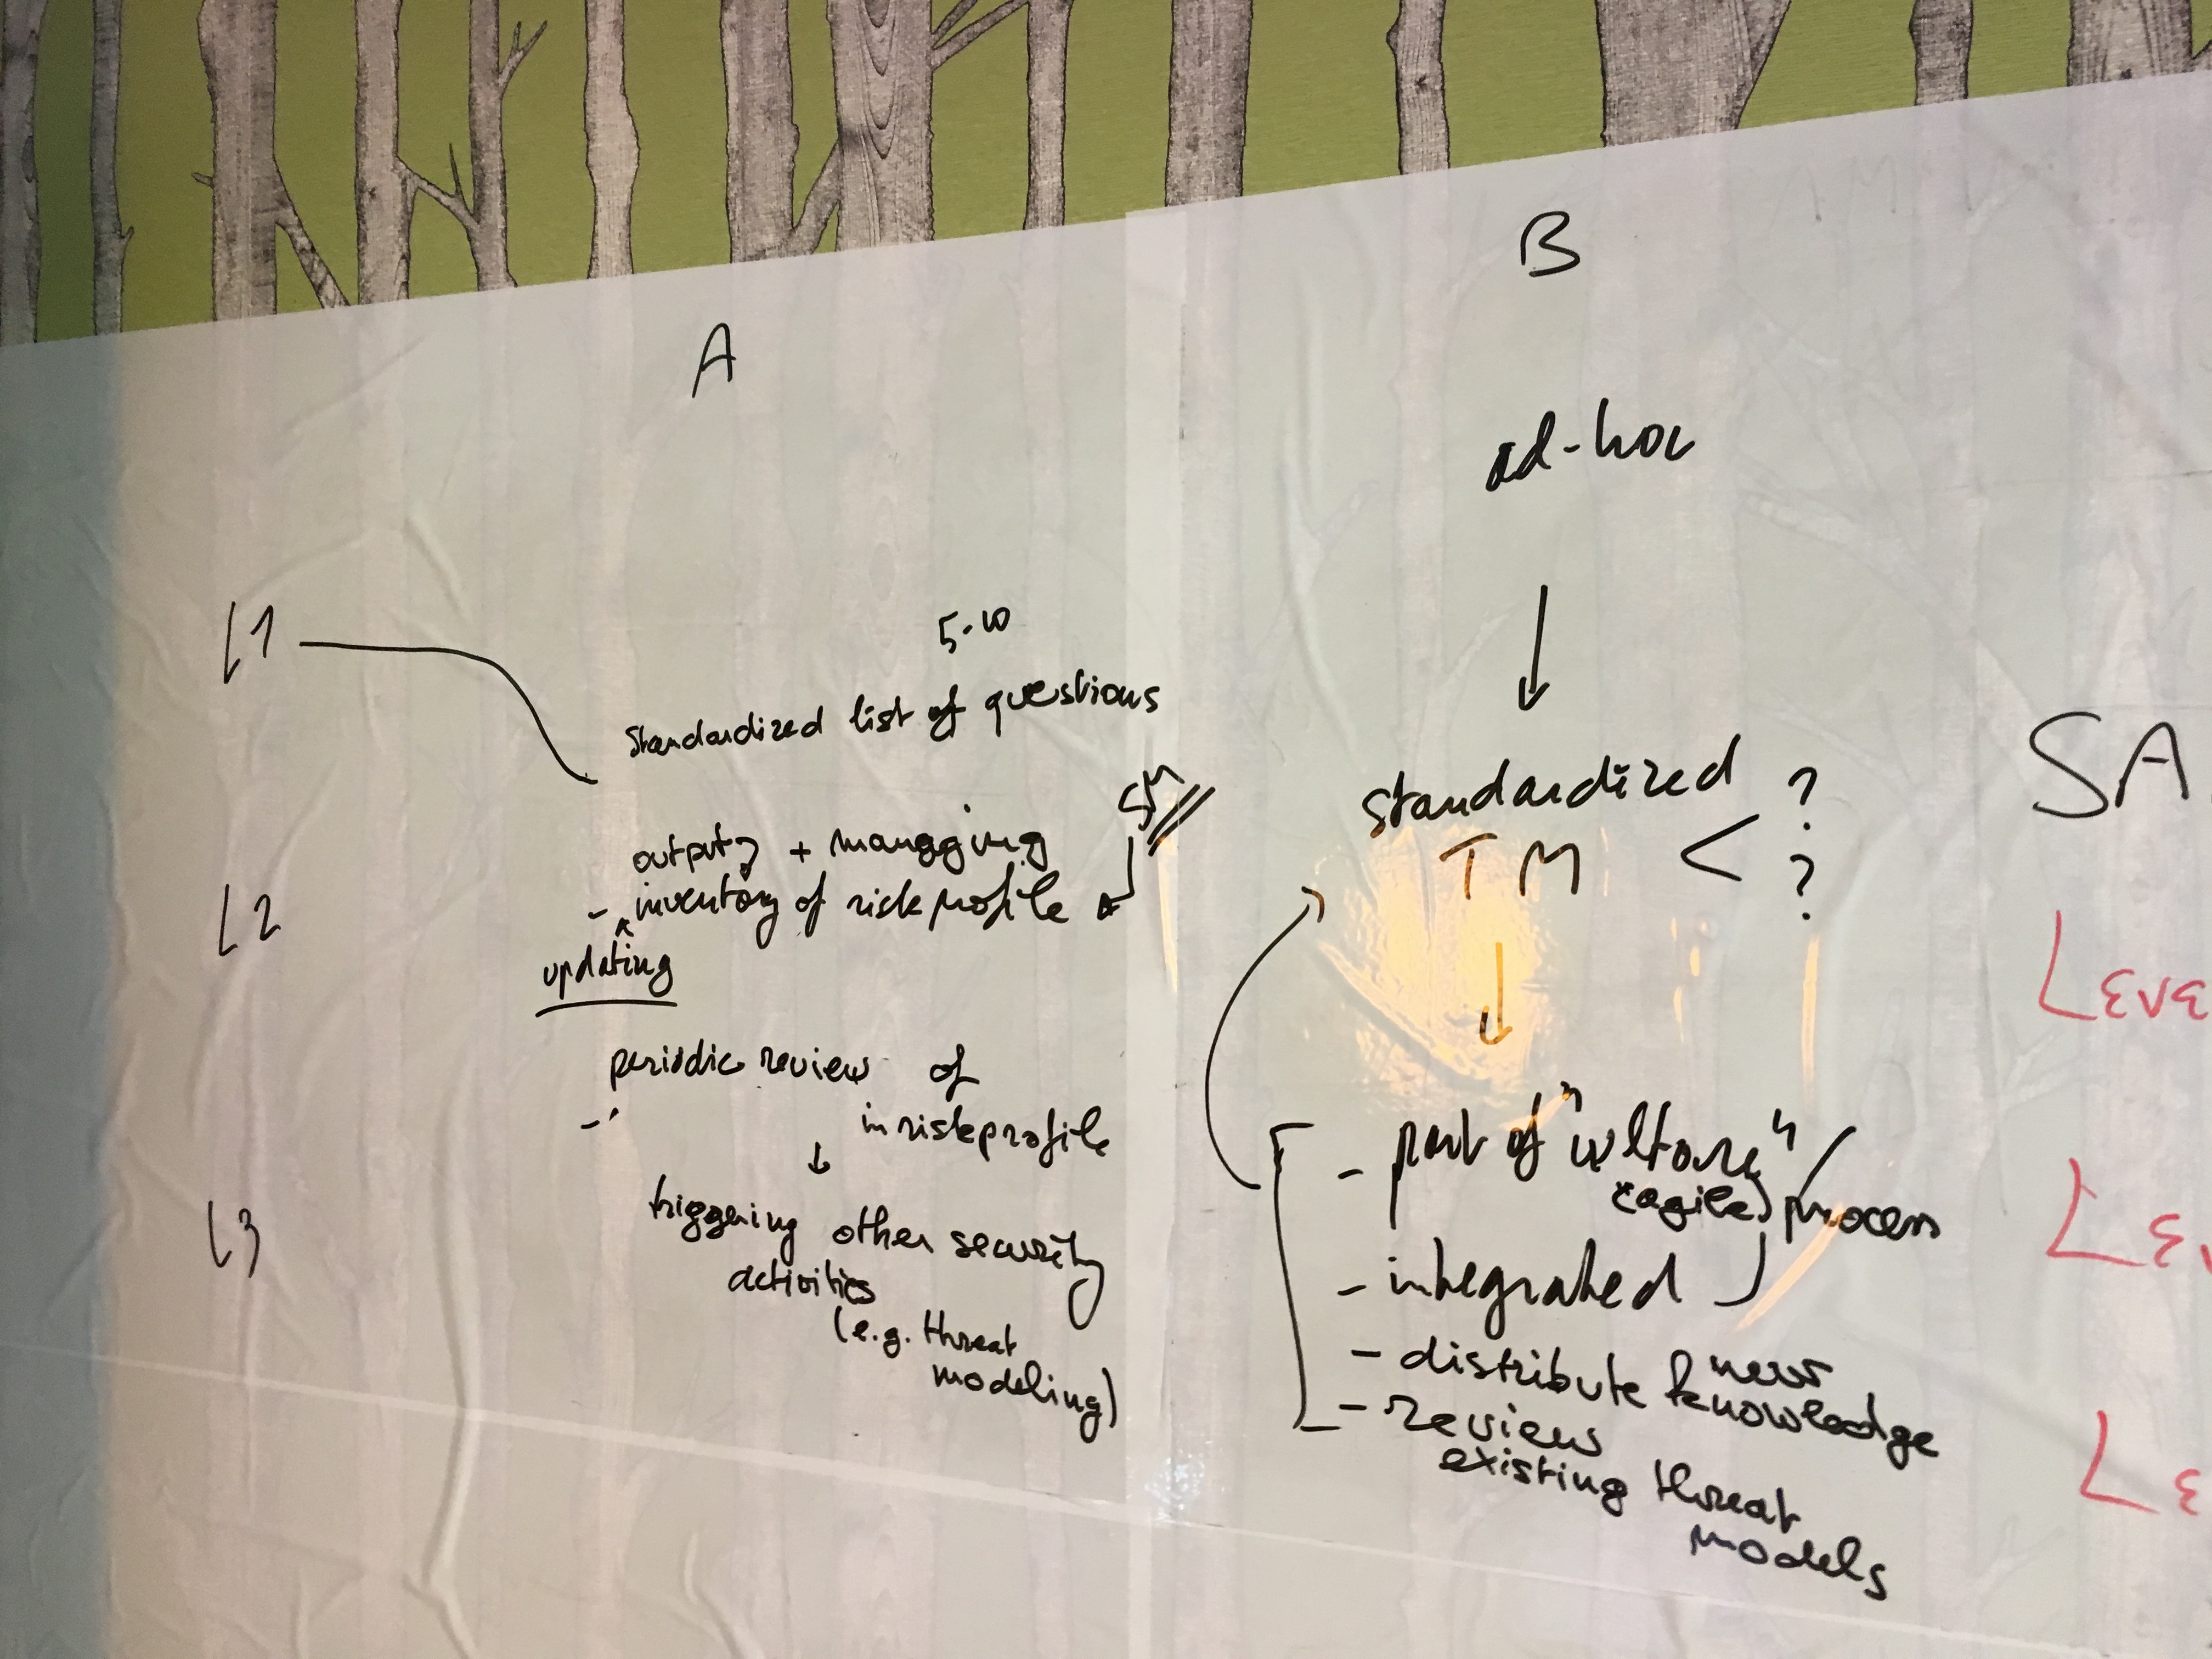 A
B
ad-hoc
L1
5-10
Standardized list of questions
SM
output + managing
L2
- inventory of risk profile
updating
standardized ?
TM < ?
periodic review of
in riskprofile
L3
triggering other security
activities
(e.g. threat
modeling)
- part of "culture" /
(agile) process
- integrated
- distribute new
knowledge
- review
existing threat
models
SA
LEVE
LEV
LE